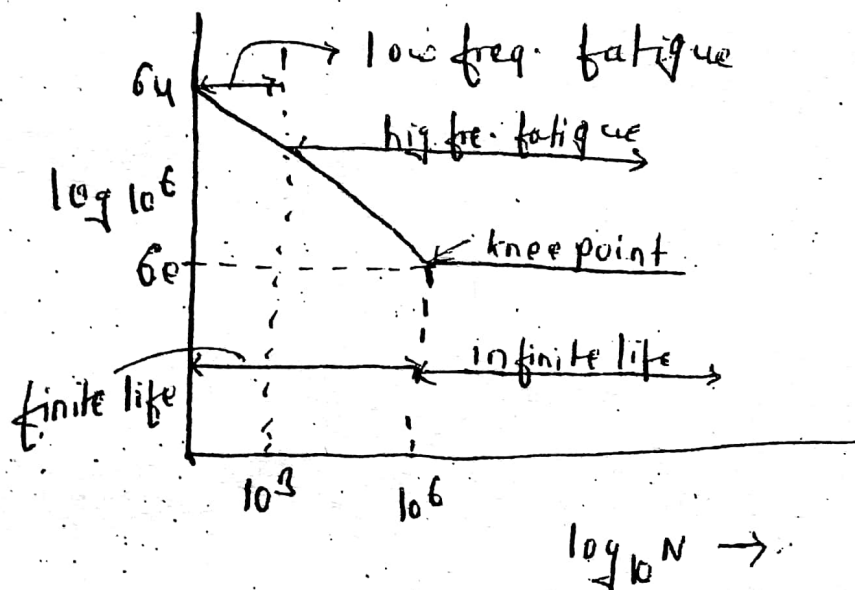 low freq. fatigue
σu
hig fre. fatigue
log 10 σ
knee point
σe
infinite life
finite life
10³
10⁶
log₁₀ N →